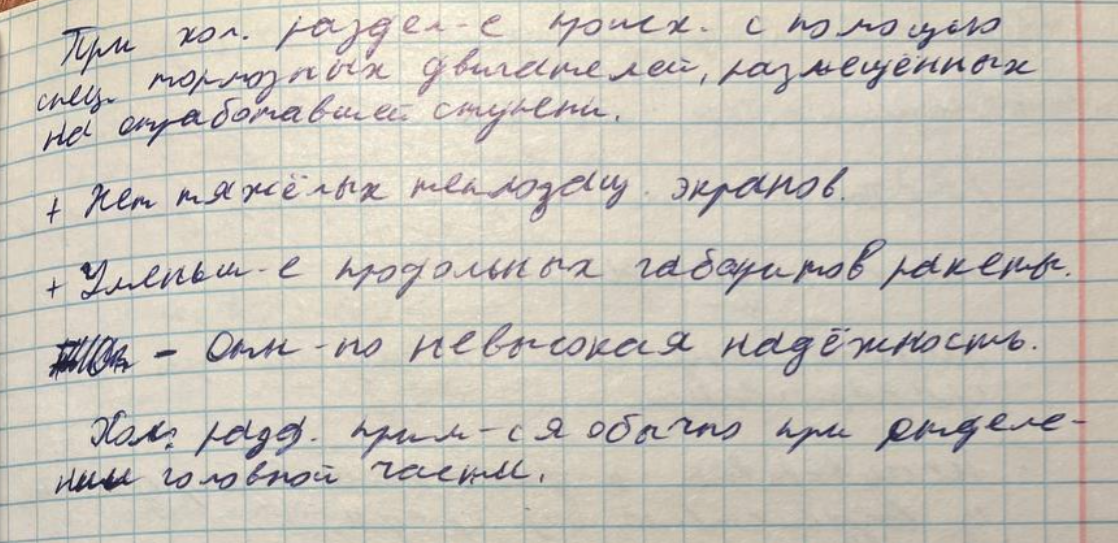 При хол. раздел-е проих. с помощью
спец. тормозных двигателей, размещённых
на отработавшей ступени.
+ Нет тяжёлых теплозащ. экранов.
+ Уменьш-е продольных габаритов ракеты.
- Отн-но невысокая надёжность.
Хол. разд. прим-ся обычно при отделе-
нии головной части.